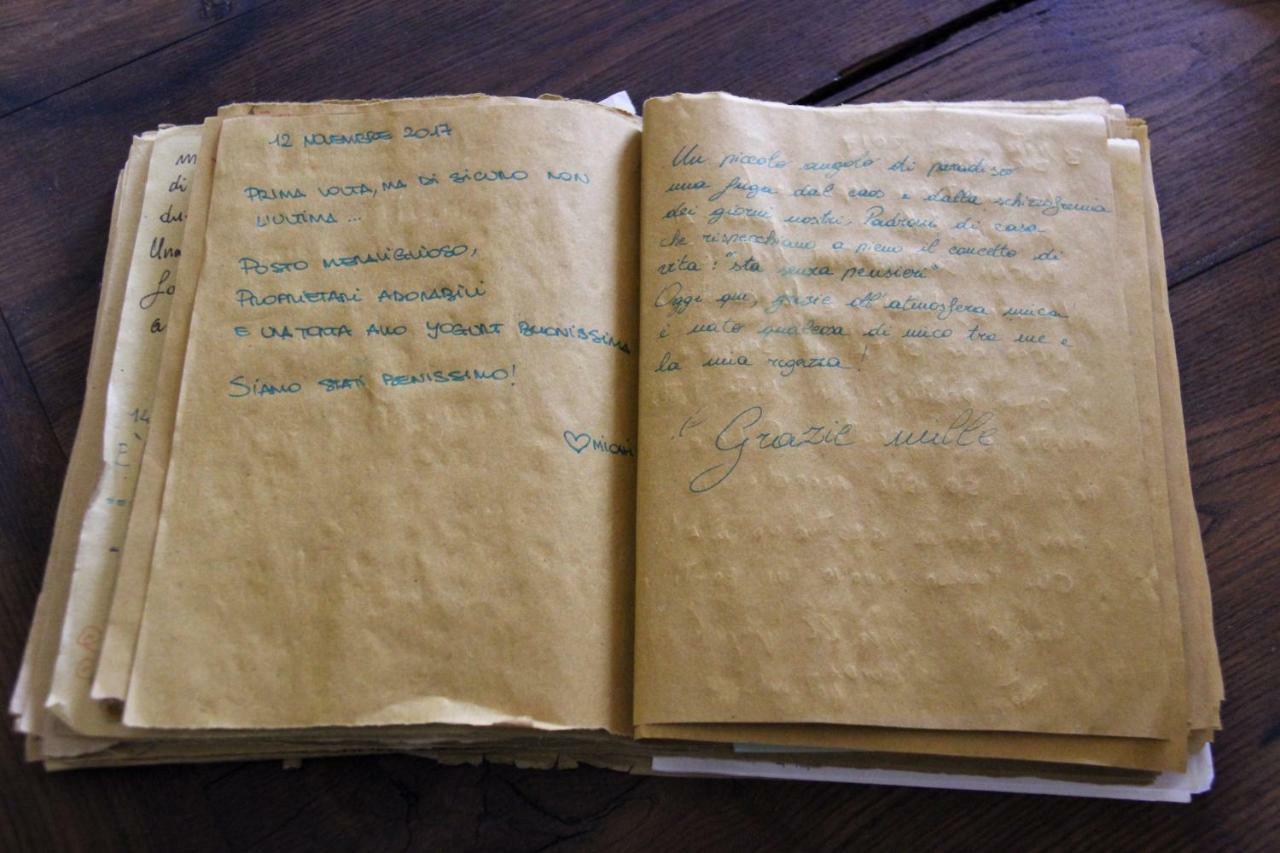 12 NOVEMBRE 2017
PRIMA VOLTA, MA DI SICURO NON
L'ULTIMA ...
POSTO MERAVIGLIOSO,
PROPRIETARI ADORABILI
E UNA TORTA ALLO YOGURT BUONISSIMA
SIAMO STATI BENISSIMO!
Un piccolo angolo di paradiso
una fuga dal caos e dalla schizofrenia
dei giorni nostri. Padroni di casa
che rispecchiano a pieno il concetto di
vita: "sta senza pensieri"
Oggi qui, grazie all'atmosfera unica
è nato qualcosa di unico tra me e
la mia ragazza!
Grazie mille
m
di
du
Una
fo
a
14
E